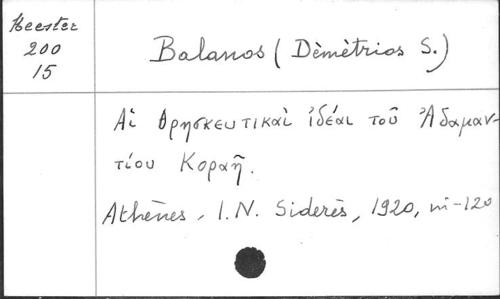 Heester
200
15
Balanos (Dèmètrios S.)
Αἱ θρησκευτικαὶ ἰδέαι τοῦ Ἀδαμαν-
τίου Κοραῆ.
Athènes, I.N. Siderès, 1920, in-120